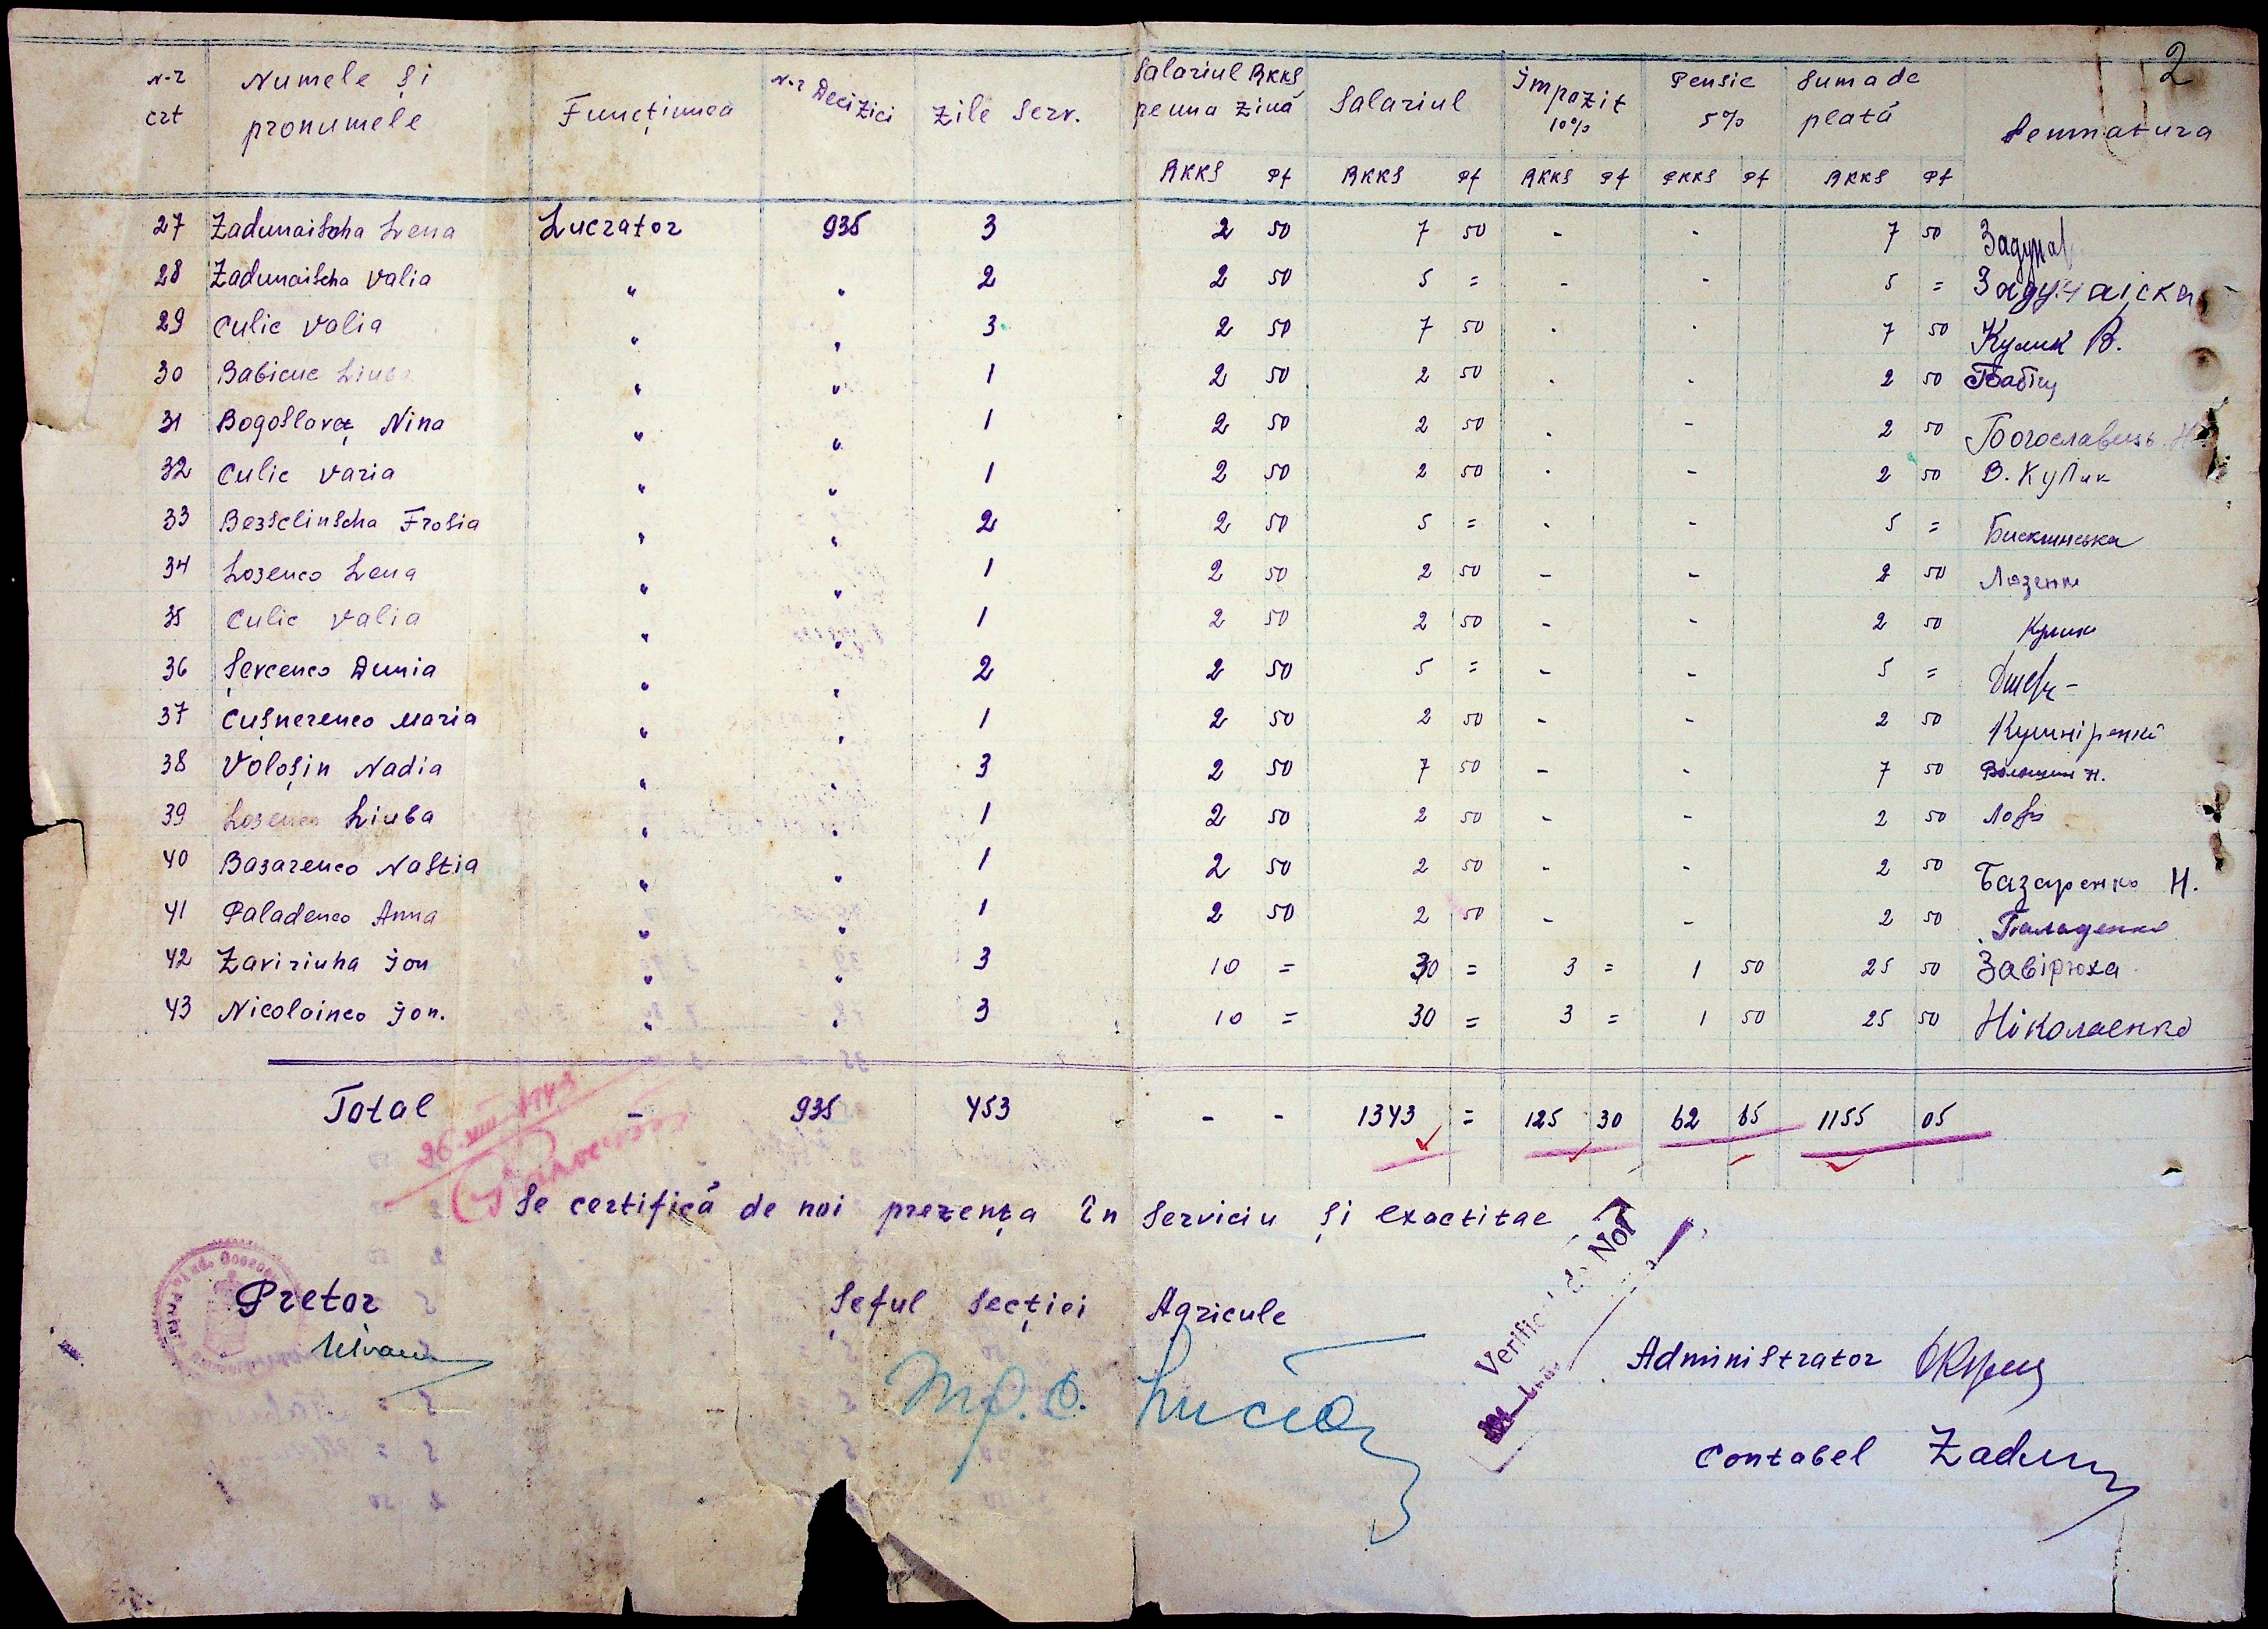 2
N-r crt Numele și pronumele Funcțiunea N-r Decizici Zile Serv. Salariul RKKS pe una zină Salariul Impozit 10% Pensie 5% Suma de plată Semnatura
RKKS Pf RKKS Pf RKKS Pf RKKS Pf RKKS Pf
27 Zadunaischa Lena Lucrator 935 3 2 50 7 50 - - 7 50 Задунай
28 Zadunaischa Valia " " 2 2 50 5 = - - 5 = Задунајска
29 Culic Valia " " 3 2 50 7 50 - - 7 50 Кулик В.
30 Babicuc Liuba " " 1 2 50 2 50 - - 2 50 Бабіц
31 Bogoslaveț Nina " " 1 2 50 2 50 - - 2 50 Богославець Н.
32 Culic Varia " " 1 2 50 2 50 - - 2 50 В. Кулик
33 Bezsclinscha Frosia " " 2 2 50 5 = - - 5 =
34 Lozenco Lena " " 1 2 50 2 50 - - 2 50 Лозенко
35 Culic Valia " " 1 2 50 2 50 - - 2 50 Кулик
36 Șevcenco Dunia " " 2 2 50 5 = - - 5 =
37 Cușnerenco Maria " " 1 2 50 2 50 - - 2 50 Кушніренко
38 Voloșin Nadia " " 3 2 50 7 50 - - 7 50 Волошин Н.
39 Lozenco Liuba " " 1 2 50 2 50 - - 2 50
40 Bazarenco Nastia " " 1 2 50 2 50 - - 2 50 Базаренко Н.
41 Paladenco Anna " " 1 2 50 2 50 - - 2 50 Паладенко
42 Zaviriuha Jon " " 3 10 = 30 = 3 = 1 50 25 50 Завірюха
43 Nicolainco Jon. " " 3 10 = 30 = 3 = 1 50 25 50 Ніколаенко
Total - 935 453 - - 1343 = 125 30 62 65 1155 05
Se certifică de noi prezența în serviciu și exactitae
Pretor Șeful Secției Agricule
Verificat de Noi
Administrator
Contabel Zadun